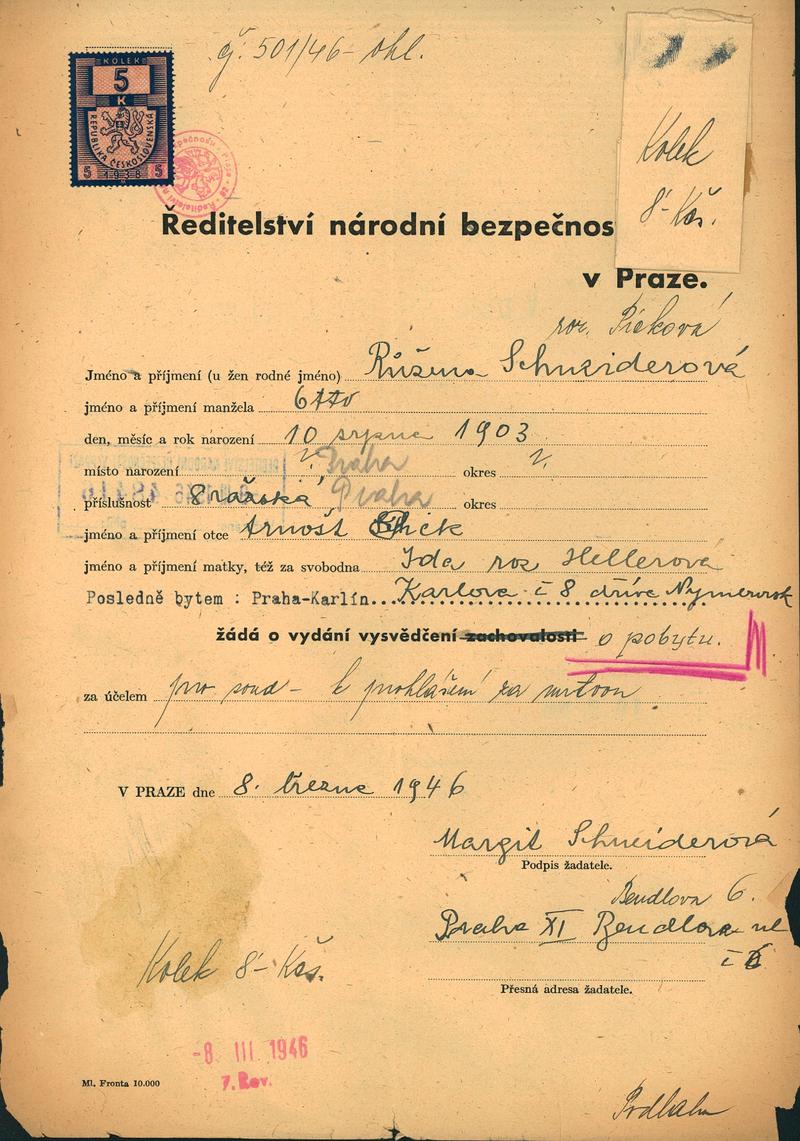 č. 501/46- ohl.
KOLEK
5
K
REPUBLIKA ČESKOSLOVENSKÁ
5 1938 5
Kolek
8'- Kčs.
Ředitelství národní bezpečnos
v Praze.
roz. Picková
Jméno a příjmení (u žen rodné jméno) Růžena Schneiderová
jméno a příjmení manžela Otto
den, měsíc a rok narození 10 srpna 1903
místo narození ? Praha okres ?
příslušnost Praha okres
jméno a příjmení otce Arnošt Pick
jméno a příjmení matky, též za svobodna Ida roz Hellerová
Posledně bytem : Praha-Karlín... Karlova č 8 dříve
žádá o vydání vysvědčení zachovalosti o pobytu.
za účelem pro soud - k prohlášení za mrtvou
V PRAZE dne 8. března 1946
Margit Schneiderová
Podpis žadatele.
Bendlova 6.
Praha XI Bendlova ul
č 6
Přesná adresa žadatele.
Kolek 8'- Kčs.
-8. III. 1946
7. Rev.
Ml. Fronta 10.000